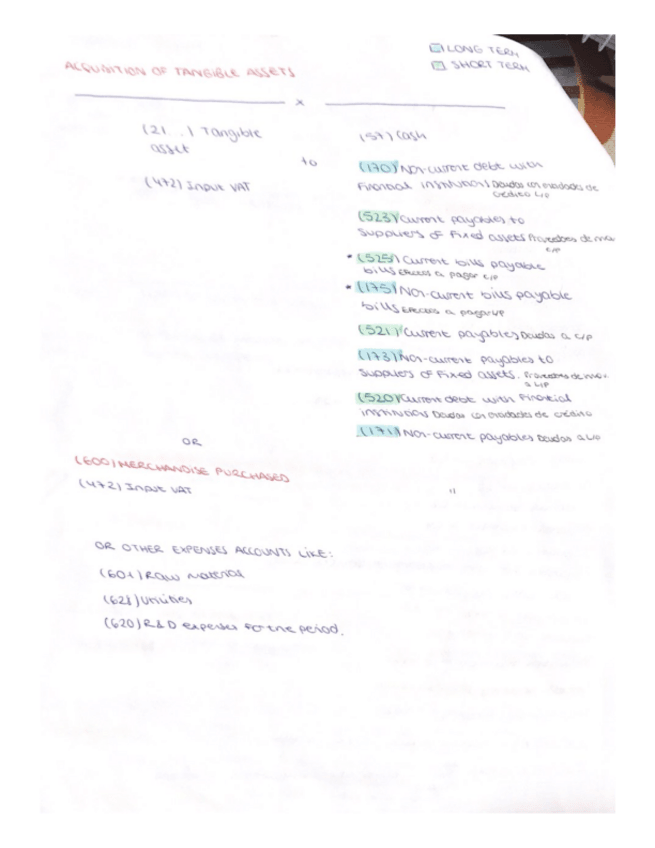 LONG TERM
SHORT TERM
ACQUISITION OF TANGIBLE ASSETS
x
(21...) Tangible
asset
to
(472) Input VAT
(57) Cash
(170) Non-current debt with
Financial institutions Deudas con entidades de
crédito L/P
(523) Current payables to
suppliers of Fixed assets Proveedores de
C/P
* (525) Current bills payable
bills Efectos a pagar C/P
* (175) Non-current bills payable
bills Efectos a pagar L/P
(521) Current payables Deudas a C/P
(173) Non-current payables to
suppliers of Fixed assets. Proveedores de
a L/P
(520) Current debt with Financial
institutions Deudas con entidades de crédito
(171) Non-current payables Deudas a L/P
OR
(600) MERCHANDISE PURCHASED
(472) Input VAT
"
OR OTHER EXPENSES ACCOUNTS LIKE:
(601) Raw material
(628) Utilities
(620) R&D expenses for the period.